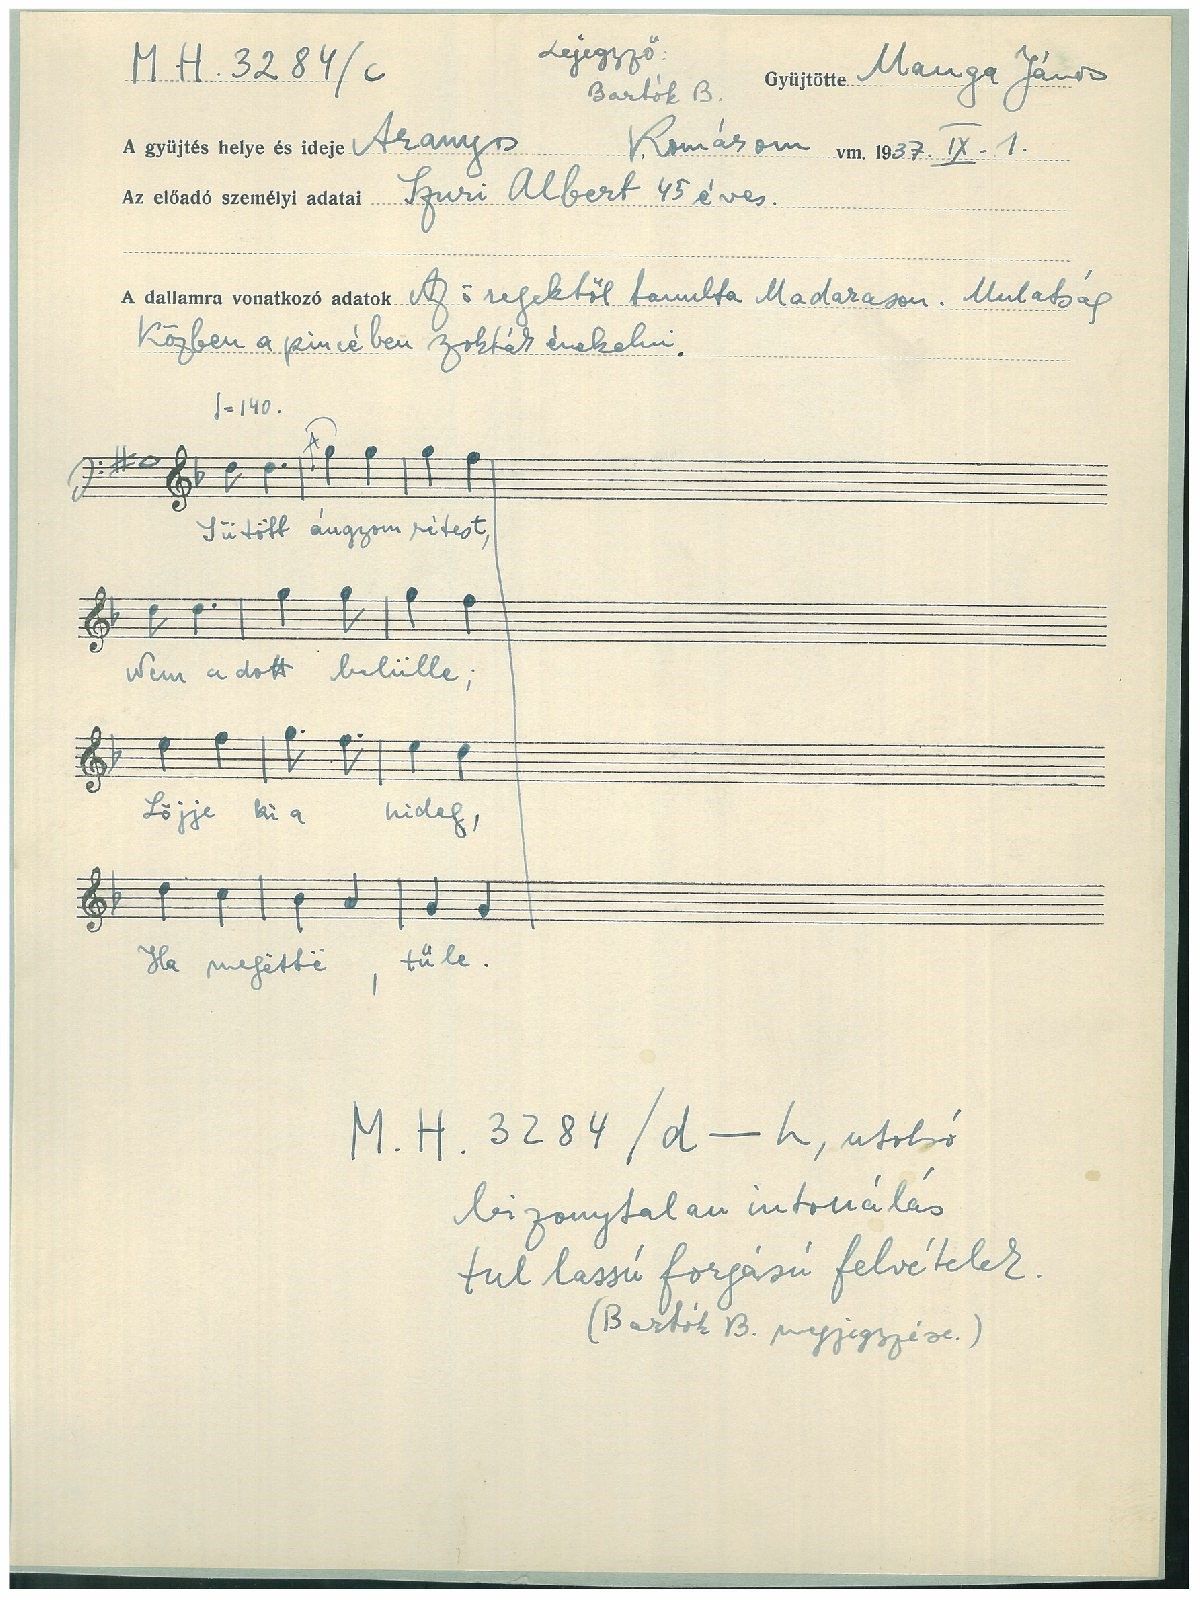 M.H. 3284/c
Lejegyző:
Bartók B.
Gyüjtötte Manga János
A gyüjtés helye és ideje Aranyos Komárom vm. 1937. IX. 1.
Az előadó személyi adatai Szuri Albert 45 éves.
A dallamra vonatkozó adatok Az öregektől tanulta Madarason. Mulatság
közben a pincében szokták énekelni.
♩=140.
Sütött ángyom rétest,
Nem adott belülle;
Lőjje ki a hideg,
Ha megëttë, tűle.
M.H. 3284/d—h, utolsó
bizonytalan intonálás
tul lassú forgású felvételek.
(Bartók B. megjegyzése.)